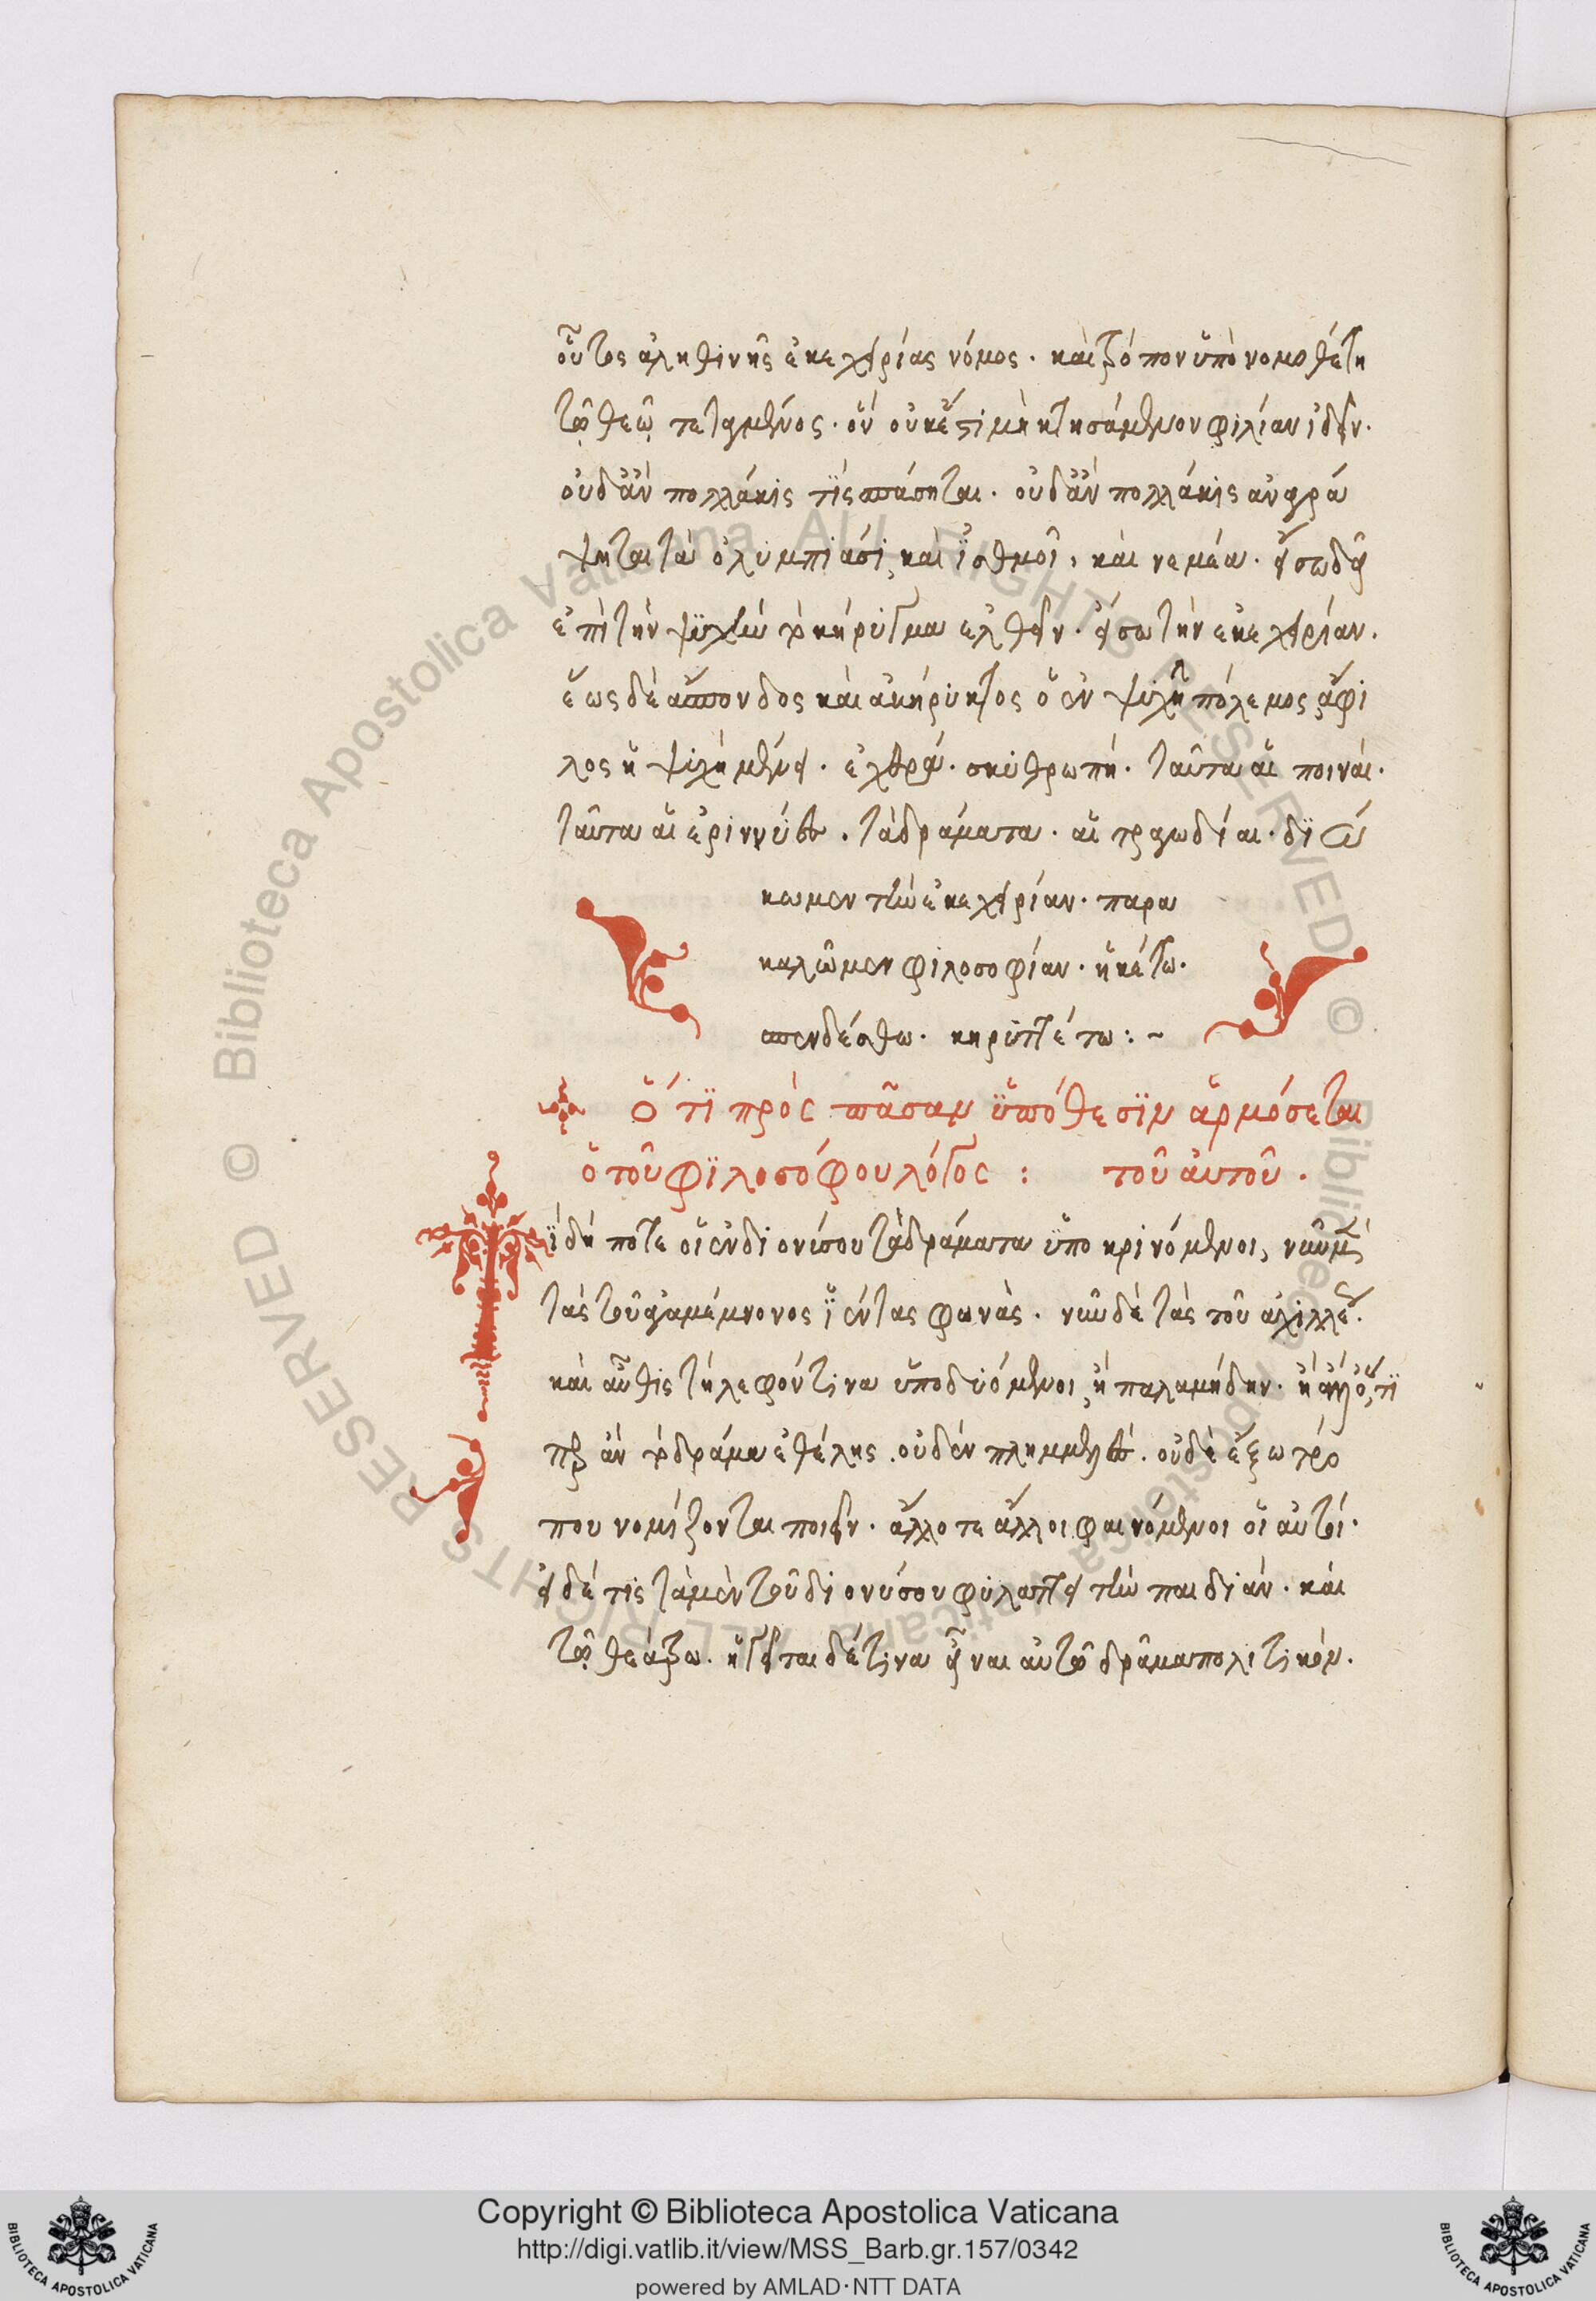 οὗτος ἀληθινῆς ἐκεχειρίας νόμος. καὶ τρόπον ὑπὸ νομοθέτῃ
τῷ θεῷ τεταγμένος. ὃν οὐκ ἔστι μὴ κτησάμενον φιλίαν ἰδεῖν.
οὐδ' ἂν πολλάκις τίς σπάσηται. οὐδ' ἂν πολλάκις αναγρά
ψηται τὰ ὀλυμπιάσι, καὶ ἰσθμοῖ, καὶ νεμέα. εἴσω δεῖ
ἐπὶ τὴν ψυχὴν τὸ κήρυγμα ἐλθεῖν. εἴσω τὴν ἐκεχειρίαν.
ἕως δὲ ἄσπονδος καὶ ἀκήρυκτος ὁ ἐν ψυχῇ πόλεμος, ἄφι
λος ἡ ψυχὴ μένει. ἐχθρά. σκυθρωπή. ταῦτα αἱ ποιναί.
ταῦτα αἱ ἐριννύες. τὰ δράματα. αἱ τραγωδίαι. διώ
κωμεν τὴν ἐκεχειρίαν. παρα
καλῶμεν φιλοσοφίαν. ἡκέτω.
σπενδέσθω. κηρυττέτω : ~
Ὅτι πρὸς πᾶσαν ὑπόθεσιν ἁρμόσεται
ὁ τοῦ φιλοσόφου λόγος : τοῦ αὐτοῦ.
ἴδή ποτε οἱ ἐν διονύσου τὰ δράματα ὑποκρινόμενοι, νῦν μὲν
τὰς τοῦ ἀγαμέμνονος ἱέντας φωνὰς. νῦν δὲ τὰς τοῦ ἀχιλλέως.
καὶ αὖθις τηλεφόν τινα ὑποδυόμενοι, ἢ παλαμήδην. ἢ ἄλλο, ὅτι
περ ἂν τὸ δράμα ἐθέλης. οὐδὲν πλημμελὲς. οὐδὲ ἔξω τρό
που νομίζονται ποιεῖν. ἄλλοτε ἄλλοι φαινόμενοι οἱ αὐτοί.
εἰ δέ τις τὰ μὲν τοῦ διονύσου φυλάττει τὴν παιδιάν. καὶ
τῷ θεάτρω. ἡγεῖται δέ τινα εἶναι αὐτῷ δρᾶμα πολιτικόν.
Copyright © Biblioteca Apostolica Vaticana
http://digi.vatlib.it/view/MSS_Barb.gr.157/0342
powered by AMLAD·NTT DATA